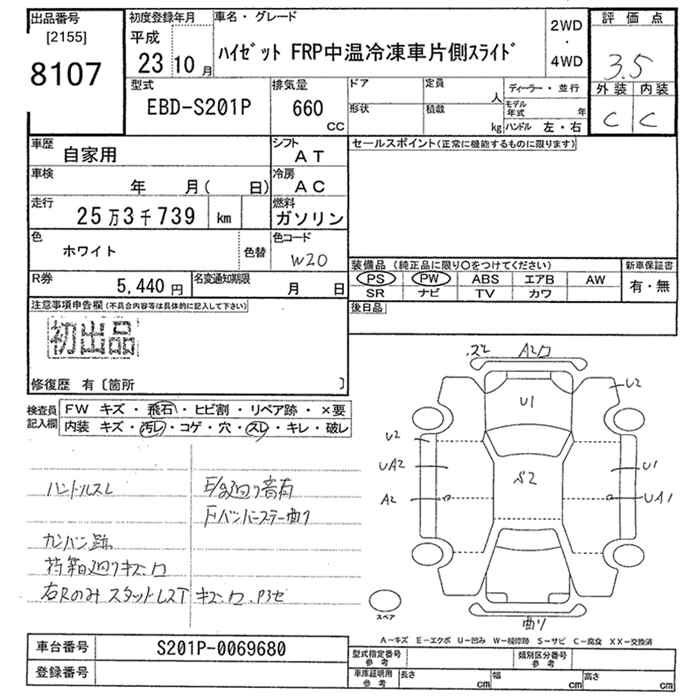 出品番号 初度登録年月 車名・グレード 評価点
[2155] 平成
8107 23年10月 ハイゼット FRP中温冷凍車片側スライド 2WD・4WD 3.5
型式 排気量 ドア 定員 人 ディーラー・並行 外装 内装
EBD-S201P 660cc 形状 積載 kg モデル年式 年 ハンドル 左・右 C C
車歴 自家用 シフト AT セールスポイント(正常に機能するものに限ります)
車検 年 月( 日) 冷房 AC
走行 25万3千739 km 燃料 ガソリン
色 ホワイト 色替 色コード W20
装備品 (純正品に限り○をつけてください) 新車保証書
R券 5,440円 名変通知期限 月 日 PS PW ABS エアB AW 有・無
SR ナビ TV カワ
注意事項申告欄(不具合内容等は具体的に記入して下さい) 後日品
初出品
修復歴 有〔箇所 〕
検査員記入欄 FW キズ・飛石・ヒビ割・リペア跡・×要
内装 キズ・汚レ・コゲ・穴・スレ・キレ・破レ
.ズ2 A2
U1 U2
U2
UA2 S2 U1
A2 UA1
ハンドルスレ E/g廻り音有
Fバンパーステー曲り
カンバン跡
荷箱廻りキズ
右Rのみスタットレス キズ
スペア 曲り
A-キズ E-エクボ U-凹み W-補修跡 S-サビ C-腐食 XX-交換済
車台番号 S201P-0069680 型式指定番号 参考 類別区分番号 参考
登録番号 車庫証明用 参考 長さ cm 幅 cm 高さ cm